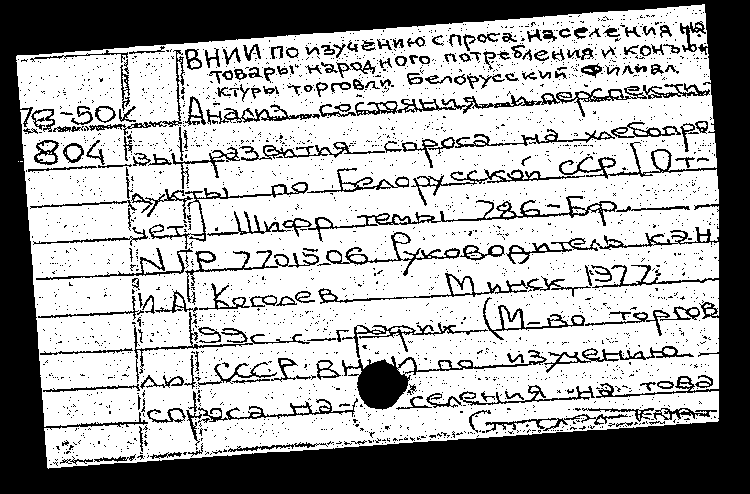 ВНИИ по изучению спроса населения на
товары народного потребления и конъюн
ктуры торговли Белорусский Филиал
78-50к Анализ состояния и перспекти-
804 вы развития спроса на хлебопро
дукты по Белорусской ССР. [От-
чет]. Шифр темы 786-БФ.
NГР 7701506. Руководитель к.э.н.
И.А. Коголев. Минск, 1977.
99с. с график. (М-во торгов
ли СССР. ВНИИ по изучению
спроса на- селения на това